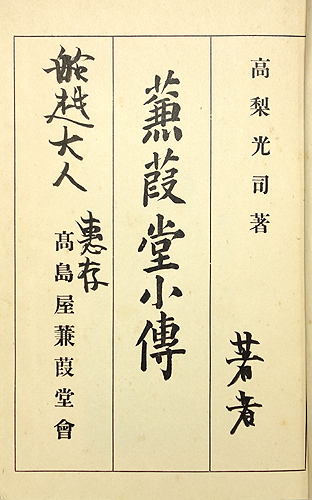 高梨光司著
著者
蒹葭堂小傳
船越大人
惠存
高島屋蒹葭堂會